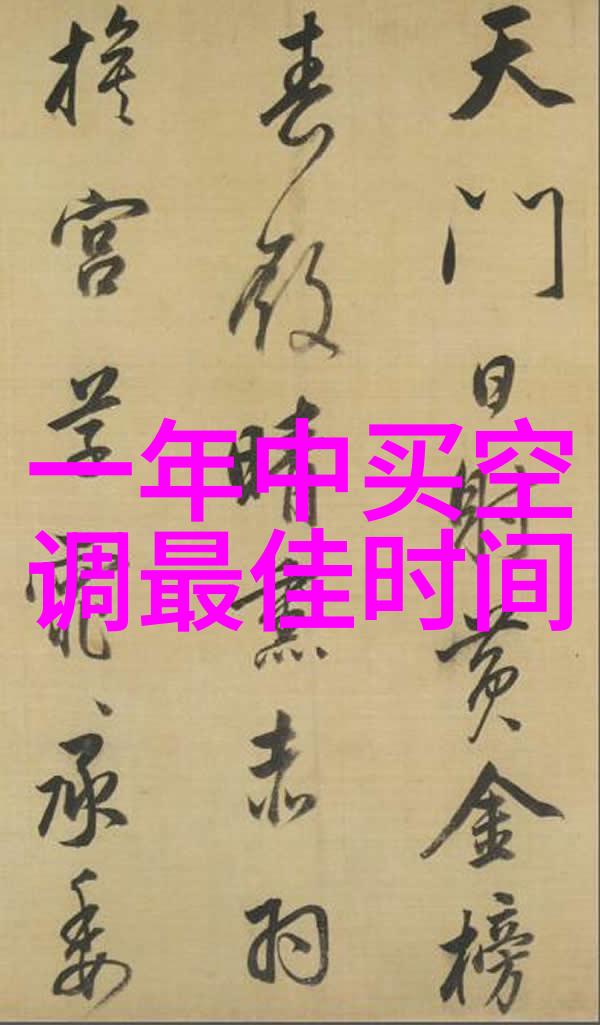 天門日射黄金榜
春殿晴熏赤羽
旗宮草霏〻承委
一年中买空
调最佳时间